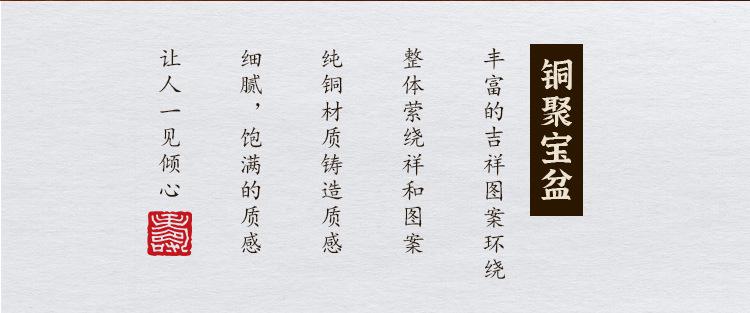 铜聚宝盆
丰富的吉祥图案环绕
整体萦绕祥和图案
纯铜材质铸造质感
细腻，饱满的质感
让人一见倾心